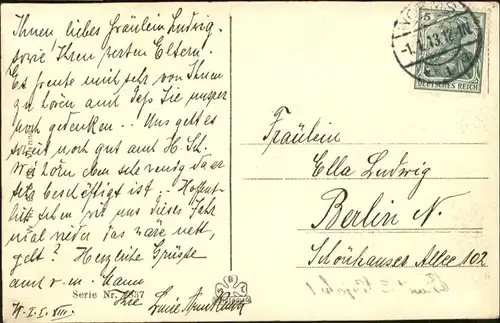 Ihnen lieber Fräulein Ludwig
sowie Ihren werten Eltern.
Es freute mich sehr von Ihnen
zu hören und daß Sie unsrer
noch gedenken.. Uns geht es
soweit noch gut auch H. Sch.
Wir hören eben sehr wenig da er
sehr beschäftigt ist.. Hoffent-
lich sehen wir uns dieses Jahr
mal wieder das wäre nett,
gelt? Herzliche Grüsse
auch v. m. Mann
Ihre
Serie Nr.
DEUTSCHES REICH
5
-1.1.13.
Fräulein
Ella Ludwig
Berlin N.
Schönhauser Allee 102